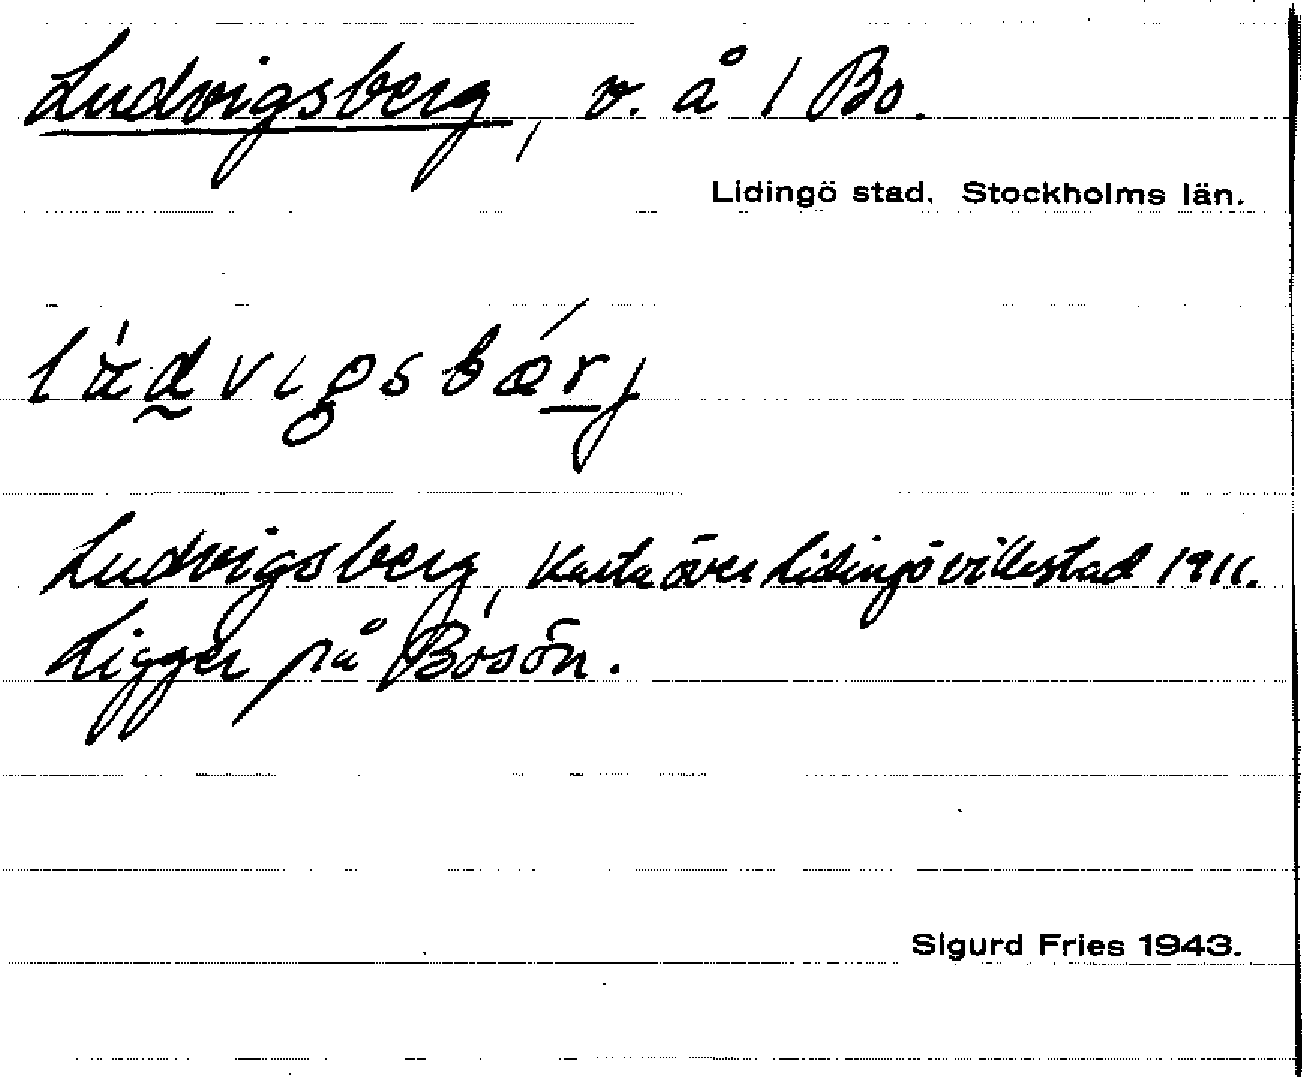 Ludvigsberg, v. å / Bo.
Lidingö stad. Stockholms län.
Ludvigsberg, Karta över Lidingö villastad 1911.
Ligger på Bosön.
Sigurd Fries 1943.